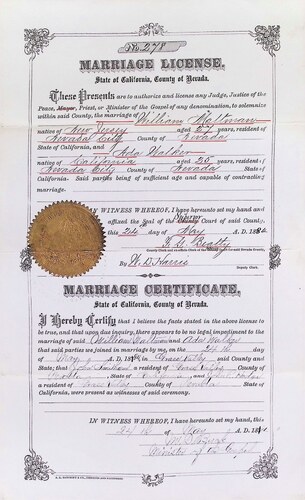 No 278
MARRIAGE LICENSE.
State of California, County of Nevada.
These Presents are to authorize and license any Judge, Justice of the
Peace, Mayor, Priest, or Minister of the Gospel of any denomination, to solemnize
within said County, the marriage of William
native of New Jersey aged years, resident of
Nevada City County of Nevada
State of California, and Ada
native of California aged 25 years, resident of
Nevada City County of Nevada State of
California. Said parties being of sufficient age and capable of contracting
marriage.
IN WITNESS WHEREOF, I have hereunto set my hand and
affixed the Seal of the Superior Court of said County,
this 24 day of May A. D. 188
Beatty
By Harris
Deputy Clerk.
MARRIAGE CERTIFICATE.
State of California, County of Nevada.
I Hereby Certify that I believe the facts stated in the above license to
be true, and that upon due inquiry, there appears to be no legal impediment to the
marriage of said William and Ada
that said parties were joined in marriage by me, on the
day of May A. D. 188 in Grass Valley said County and
State; that John a resident of Grass Valley County of
Nevada, State of and
a resident of Grass Valley County of Nevada State of
California, were present as witnesses of said ceremony.
IN WITNESS WHEREOF, I have hereunto set my hand, this
day of May A. D. 188
Minister of the Gospel